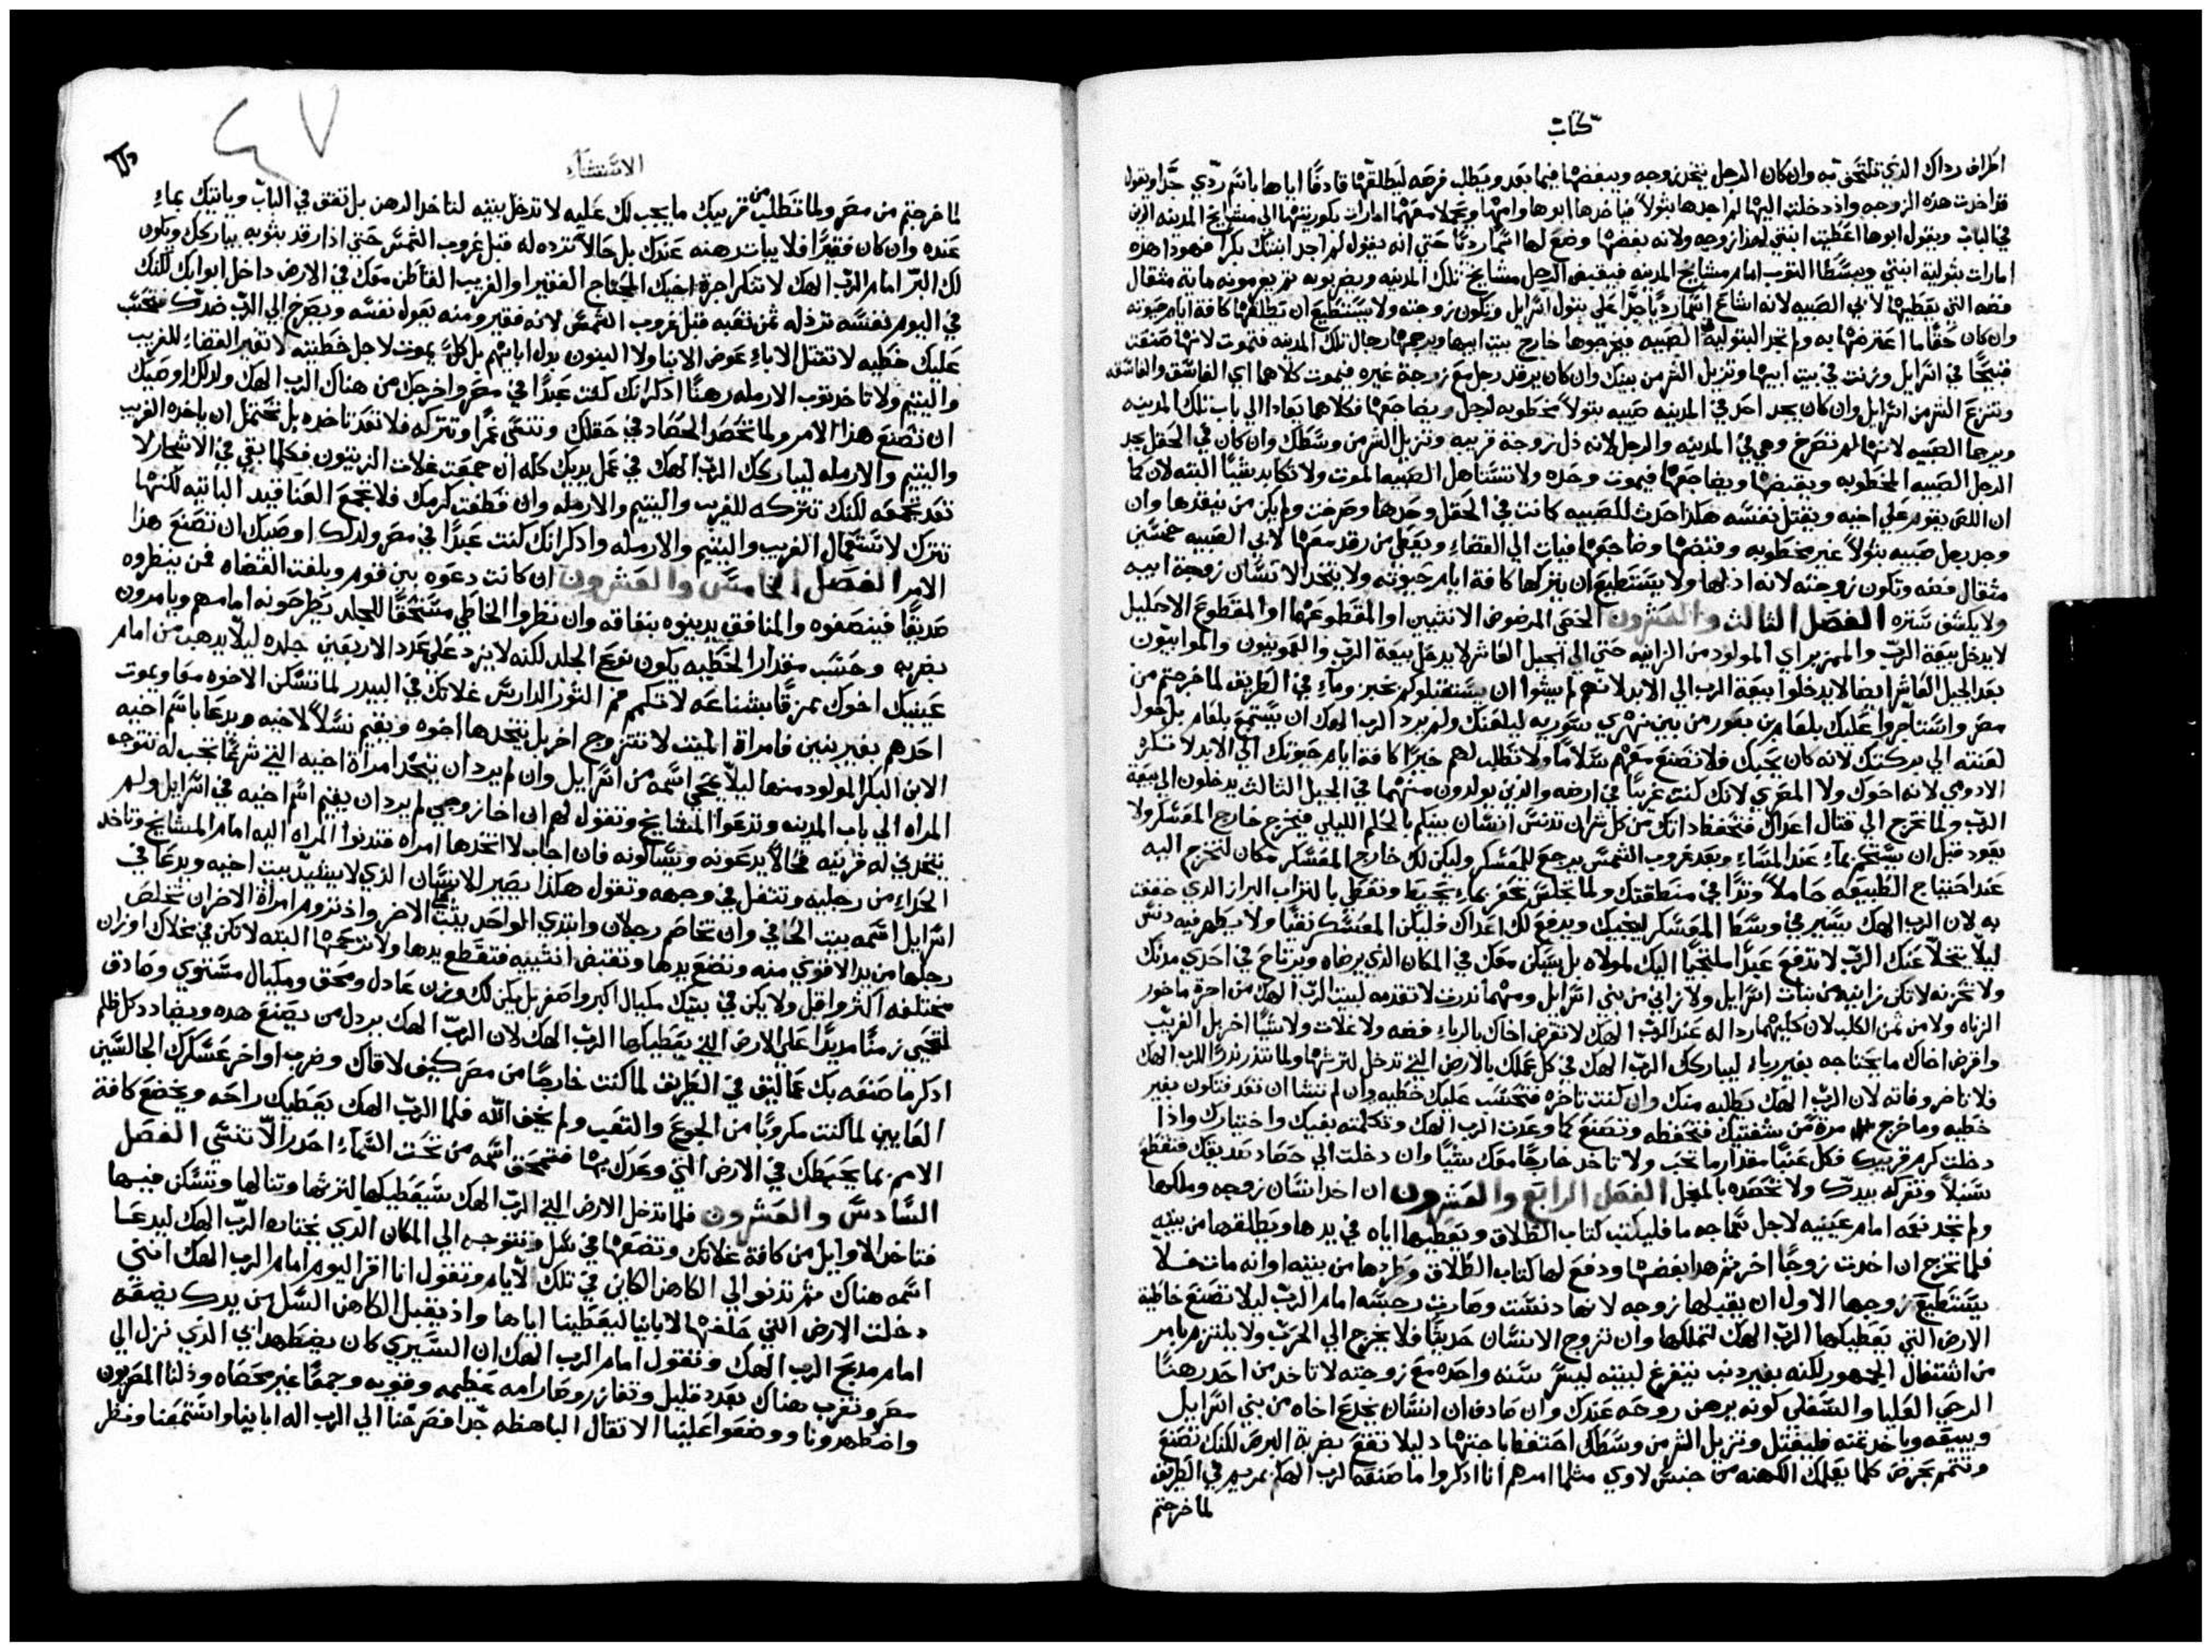 كتاب
اطراف رداك الذي تلتحق به وان كان الرجل يتخد زوجه ويبغضها فيما بعد ويطلب فرصه ليطلقها قادفًا اياها باسم ردي جدًا ويقول
قد اخدت هده الزوجه واذ دخلت اليها لم اجدها بتولاً فياخدها ابوها وامها ويحملا معهما امارات بكوريتها الي مشايخ المدينه الدين
في الباب ويقول ابوها اعطيت ابنتي لهذا زوجه ولانه يبغضها وضع لها اسمًا رديًا حتي انه يقول لم اجد ابنتك بكرًا فهودا هده
امارات بتولية ابنتي ويبسطا التوب امام مشايخ المدينه فيقبض الرجل مشايخ تلك المدينه ويضربونه ثم يغرمونه ماية مثقال
فضه التي يعطيها لابي الصبيه لانه اشاع اسمًا رديًا جدًا علي بتول اسرايل وتكون زوجته ولا يستطيع ان يطلقها كافة ايام حيوته
وان كان حقًا ما اعترضها به ولم تجد البتولية الصبيه فيخرجوها خارج بيت ابيها ويرجمها رجال تلك المدينه فتموت لانها صنعت
قبيحًا في اسرايل وزنت في بيت ابيها وتزيل الشر من بينك وان كان يرقد رجل مع زوجة غيره فيموت كلاهما اي الفاسق والفاسقه
وتنزع الشر من اسرايل وان كان يجد احد في المدينه صبيه بتولاً مخطوبه لرجل ويضاجعها فكلاهما يقادا الي باب تلك المدينه
ويرجما الصبيه لانها لم تصرخ وهي في المدينه والرجل لانه ذل زوجة قريبه وتزيل الشر من وسطك وان كان في الحقل يجد
الرجل الصبيه المخطوبه ويقبضها ويضاجعها فيموت وحده ولا تستاهل الصبيه الموت ولا تكابد شيئًا البته لان كما
ان اللص يقوم علي اخيه ويقتل نفسه هكذا حدث للصبيه كانت في الحقل وحدها وصرخت ولم يكن من ينقدها وان
وجد رجل صبيه بتولاً غير مخطوبه وقبضها وضاجعها فيات الي القضاء ويعطي من رقد معها لابي الصبيه خمسين
مثقال فضه وتكون زوجته لانه اذلها ولا يستطيع ان يتركها كافة ايام حيوته ولا يتخد الانسان زوجة ابيه
ولا يكشف ستره الفصل الثالث والعشرون الخصي المرضوض الانثيين او المقطوعهما او المقطوع الاحليل
لا يدخل بيعة الرب والممزير اي المولود من الزانيه حتي الي الجيل العاشر لا يدخل بيعة الرب والعمونيون والموابيون
بعد الجيل العاشر ايضًا لا يدخلوا بيعة الرب الي الابد لانهم لم يشوا ان يستقبلوكم بخبز وماء في الطريق لما خرجتم من
مصر واستاجروا عليك بلعام بن بعور من بين نهري سوريه ليلعنك ولم يرد الرب الهك ان يستمع بلعام بل حول
لعنته الي بركتك لانه كان يحبك فلا تصنع معهم سلامًا ولا تطلب لهم خيرًا كافة ايام حيوتك الي الابد لا تكره
الادومي لانه اخوك ولا المصري لانك كنت غريبًا في ارضه والدين يولدون منهما في الجيل الثالث يدخلون الي بيعة
الرب ولما تخرج الي قتال اعداك فتحفظ داتك من كل شر ان تدنس انسان بينكم بالحلم الليلي فيخرج خارج المعسكر ولا
يعود قبل ان يستحم بماء عند المساء وبعد غروب الشمس يرجع للمعسكر وليكن لك خارج المعسكر مكان لتخرج اليه
عند احتياج الطبيعه حاملاً وتدًا في منطقتك ولما تجلس تحفر بماء يحيط وتغطي بالتراب البراز الدي خففت
به لان الرب الهك يسير في وسط المعسكر لينجيك ويدفع لك اعداك فليكن المعسكر نقيًا ولا يظهر فيه دنس
ليلا يتخلا عنك الرب لا تدفع عبدًا ملتجيًا اليك لمولاه بل يسكن معك في المكان الذي يرضاه ويرتاح في احدي مدنك
ولا تحزنه لا تكن زانيه من بنات اسرايل ولا زاني من بني اسرايل ومهما ندرت لا تقدمه لبيت الرب الهك من اجرة ماخور
الزناه ولا من ثمن الكلب لان كليهما رداله عند الرب الهك لا تقرض اخاك بالرباء فضه ولا غلات ولا شيًا اخر بل الغريب
واقرض اخاك ما يحتاجه بغير رباء ليباركك الرب الهك في كل عملك بالارض التي تدخل لترثها ولما تندر ندرًا للرب الهك
فلا تاخر وفاته لان الرب الهك يطلبه منك وان كنت تاخره فتحسب عليك خطيه وان لم تشا ان تعد فتكون بغير
خطيه وما خرج مرة من شفتيك فتحفظه وتصنع كما وعدت الرب الهك وتكلمته بفيك واختيارك واذا
دخلت كرم قريبك فكل عنبًا مقدار ما تحب ولا تاخد خارجًا معك شيًا وان دخلت الي حصاد صديقك فتقطع
سنبلاً وتفركه بيدك ولا تحصده بالمنجل الفصل الرابع والعشرون ان اخد انسان زوجه وملكها
ولم تجد نعمه امام عينيه لاجل سماجه ما فليكتب كتاب الطلاق ويعطيها اياه في يدها ويطلقها من بيته
فلما تخرج ان اخدت زوجًا اخر ثم هدا يبغضها ودفع لها كتاب الطلاق وطردها من بيته او انه مات فلا
يستطيع زوجها الاول ان يقبلها زوجه لانها دنست وصارت رجسه امام الرب ليلا تصنع خاطية
الارض التي يعطيكها الرب الهك لتملكها وان تزوج الانسان حديثًا فلا يخرج الي الحرب ولا يلتزم بامر
من اشتغال الجمهور لكنه بغير دنب يتفرغ لبيته ليسر سنه واحده مع زوجته لا تاخد من احد رهنًا
الرحي العليا والسفلي كونه يرهن روحه عندك وان صادف ان انسان يخدع اخاه من بني اسرايل
ويبيعه وياخد ثمنه فليقتل وتزيل الشر من وسطك احتفظ باجتهاد ليلا تقع بضربة البرص لكنك تصنع
وتتمم بحرص كلما يعلمك الكهنه من جنس لاوي مثلما امرهم انا ادكروا ما صنعه الرب الهكم بمريم في الطريق
لما خرجتم
٤٧
الاستثناء
لما خرجتم من مصر ولما تطلب من قريبك ما يجب لك عليه لا تدخل بيته لتاخد الرهن بل تقف في الباب وياتيك بماء
عنده وان كان فقيرًا فلا يبات رهنه عندك بل حالاً ترده له قبل غروب الشمس حتي اذا رقد بثوبه يباركك ويكون
لك البر امام الرب الهك لا تنكر اجرة اخيك المحتاج الفقير او الغريب القاطن معك في الارض داخل ابوابك لكنك
في اليوم نفسه ترد له ثمن تعبه قبل غروب الشمس لانه فقير ومنه يعول نفسه ويصرخ الي الرب ضدك فتحسب
عليك خطيه لا تقتل الاباء عوض الابنا ولا البنون بدل ابايهم بل كلٌ يموت لاجل خطيته لا تغير القضاء للغريب
واليتيم ولا تاخد توب الارمله رهنًا ادكر انك كنت عبدًا في مصر واخرجك من هناك الرب الهك ولدلك اوصيك
ان تصنع هذا الامر ولما تحصد الحصاد في حقلك وتنسي غمرًا وتتركه فلا تعد تاخده بل تحتمل ان ياخده الغريب
واليتيم والارمله ليباركك الرب الهك في عمل يديك كله ان جمعت غلات الزيتون فكلما بقي في الاشجار لا
تعد تجمعه لكنك تتركه للغريب واليتيم والارمله وان قطفت كرمك فلا تجمع العناقيد الباقيه لكنها
تترك لاستعمال الغريب واليتيم والارمله وادكر انك كنت عبدًا في مصر ولدلك اوصيك ان تصنع هذا
الامر الفصل الخامس والعشرون ان كانت دعوه بين قوم وبلغت القضاه فمن ينظروه
صديقًا فينصفوه والمنافق يدينوه بنفاقه وان نظروا الخاطي مستحقًا للجلد يطرحونه امامهم ويامرون
بضربه وحسب مقدار الخطيه يكون نوع الجلد لكنه لا يزد علي عدد الاربعين جلده ليلا يدهب من امام
عينيك اخوك ممزقًا بشناعه لا تكمم فم الثور الدارس غلاتك في البيدر لما تسكن الاخوه معًا ويموت
احدهم بغير بنين فامراة الميت لا تتزوج اخر بل يتخدها اخوه ويقيم نسلاً لاخيه ويدعا باسم اخيه
الابن البكر المولود منها ليلا يمحي اسمه من اسرايل وان لم يرد ان يتخد امراة اخيه التي شرعًا تجب له تتوجه
المراه الي باب المدينه وتدعوا المشايخ وتقول لهم ان اخا زوجي لم يرد ان يقيم اسم اخيه في اسرايل ولم
يتخدني له قرينه فحالاً يدعونه ويسالونه فان اجاب لا اتخدها امراه فتدنوا المراه اليه امام المشايخ وتاخد
الحذاء من رجليه وتتفل في وجهه وتقول هكذا يصير للانسان الذي لا يشيد بيت اخيه ويدعا في
اسرايل اسمه بيت الحافي وان تخاصم رجلان وابتدي الواحد يشتم الاخر واذ تروم امراة الاخر ان تخلص
رجلها من يد الاقوي منه وتضع يدها وتقبض انثييه فتقطع يدها ولا ترحمها البته لا تكن في مخلاك اوزان
مختلفه اكثر واقل ولا يكن في بيتك مكيال اكبر واصغر بل يكن لك وزن عادل ومحق ومكيال مستوي وصادق
لتحيي زمنًا مديدًا علي الارض التي يعطيكها الرب الهك لان الرب الهك يردل من يصنع هده ويضادد كل ظلم
ادكر ما صنعه بك عماليق في الطريق لما كنت خارجًا من مصر كيف لاقاك وضرب اواخر عسكرك الجالسين
العايبين لما كنت مكروبًا من الجوع والتعب ولم يخف الله فلما الرب الهك يعطيك راحه ويخضع كافة
الامم بما يحيطك في الارض التي وعدك بها فتمحق اسمه من تحت السماء احدر الا تنسي الفصل
السادس والعشرون فلما تدخل الارض التي الرب الهك سيعطيكها لترثها وتنالها وتسكن فيها
فتاخد الاوايل من كافة غلاتك وتضعها في سل وتتوجه الي المكان الذي يختاره الرب الهك ليدعا
اسمه هناك ثم تدنوا الي الكاهن الكاين في تلك الايام وتقول انا اقر اليوم امام الرب الهك انني
دخلت الارض التي حلف بها لابايا ليعطينا اياها واذ يقبل الكاهن السل من يدك يضعه
امام مدبح الرب الهك وتقول امام الرب الهك ان السيري كان يضطهد ابي الذي نزل الي
مصر وتغرب هناك بعدد قليل وتغازر وصار امه عظيمه وقويه وجمعًا غير محصاه وذلنا المصريون
واضطهدونا ووضعوا علينا الاثقال الباهظه جدًا فصرخنا الي الرب اله ابايينا واستمعنا ونظر